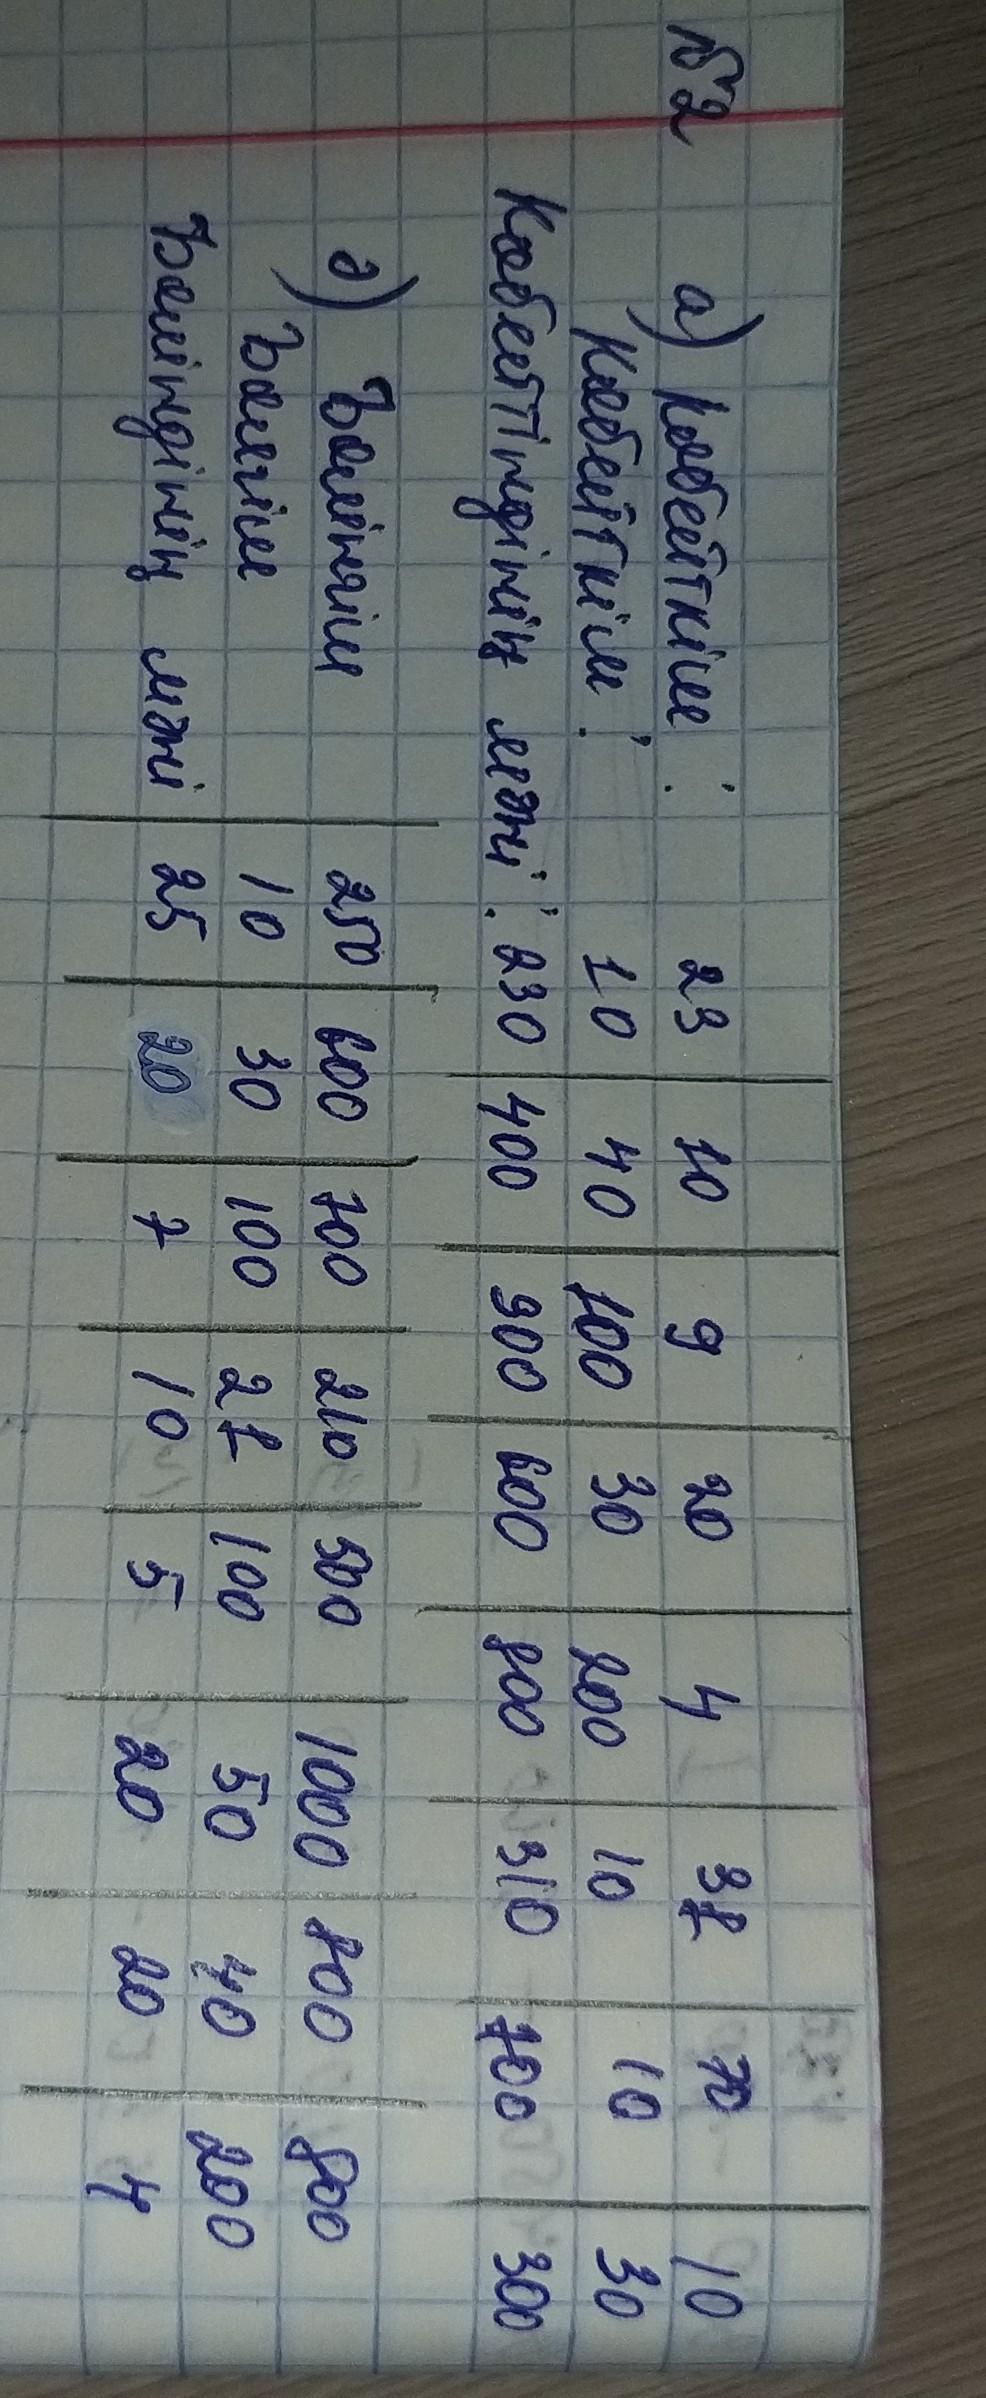 №2 а) Көбейткіш: 23 10 9 20 4 31 70 10
Көбейткіш: 10 40 100 30 200 10 10 30
Көбейтіндінің мәні: 230 400 900 600 800 310 700 300
ә) Бөлінгіш 250 600 700 210 500 1000 800 800
Бөлгіш 10 30 100 21 100 50 40 200
Бөліндінің мәні 25 20 7 10 5 20 20 4